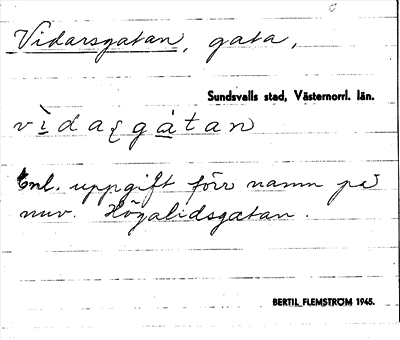 Vidarsgatan, gata,
Sundsvalls stad, Västernorrl. län.
vìdaʂgàtan
Enl. uppgift förr namn på
nuv. Högalidsgatan.
BERTIL FLEMSTRÖM 1945.